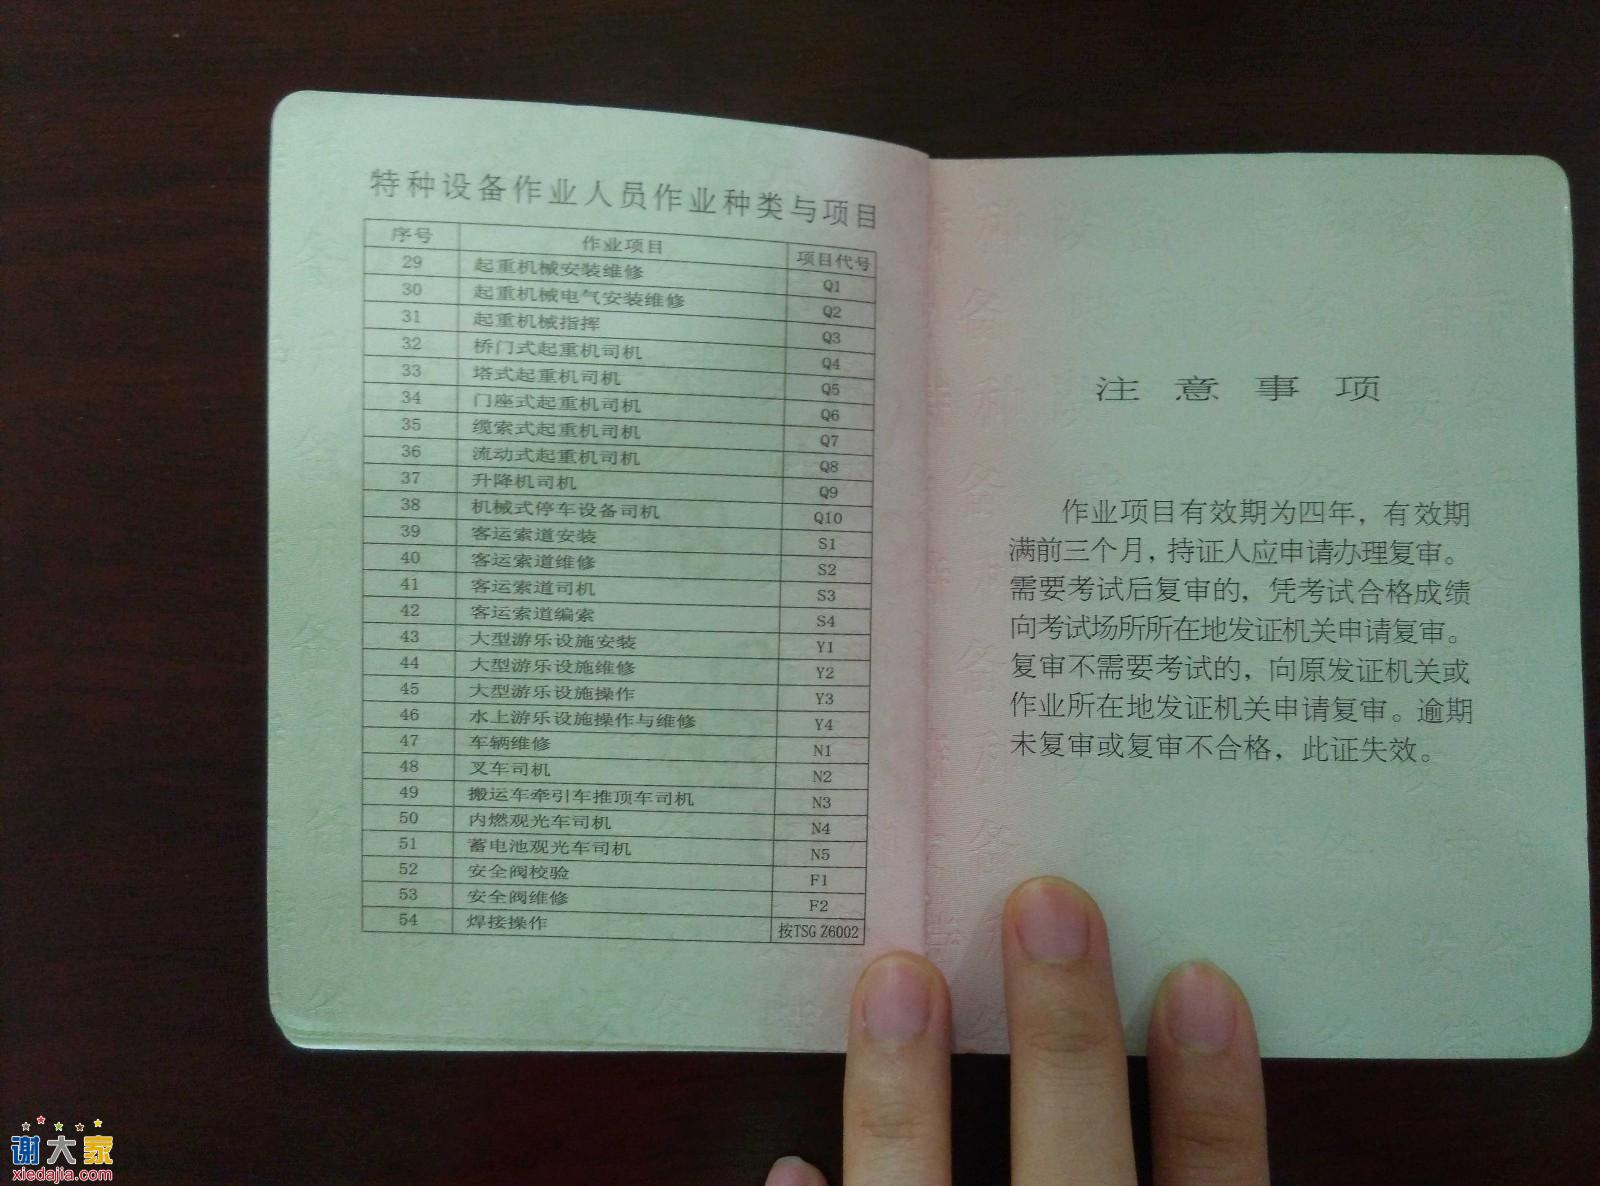 特种设备作业人员作业种类与项目
序号 作业项目 项目代号
29 起重机械安装维修 Q1
30 起重机械电气安装维修 Q2
31 起重机械指挥 Q3
32 桥门式起重机司机 Q4
33 塔式起重机司机 Q5
34 门座式起重机司机 Q6
35 缆索式起重机司机 Q7
36 流动式起重机司机 Q8
37 升降机司机 Q9
38 机械式停车设备司机 Q10
39 客运索道安装 S1
40 客运索道维修 S2
41 客运索道司机 S3
42 客运索道编索 S4
43 大型游乐设施安装 Y1
44 大型游乐设施维修 Y2
45 大型游乐设施操作 Y3
46 水上游乐设施操作与维修 Y4
47 车辆维修 N1
48 叉车司机 N2
49 搬运车牵引车推顶车司机 N3
50 内燃观光车司机 N4
51 蓄电池观光车司机 N5
52 安全阀校验 F1
53 安全阀维修 F2
54 焊接操作 按TSG Z6002
注意事项
作业项目有效期为四年，有效期
满前三个月，持证人应申请办理复审。
需要考试后复审的，凭考试合格成绩
向考试场所所在地发证机关申请复审。
复审不需要考试的，向原发证机关或
作业所在地发证机关申请复审。逾期
未复审或复审不合格，此证失效。
谢大家
xiedajia.com